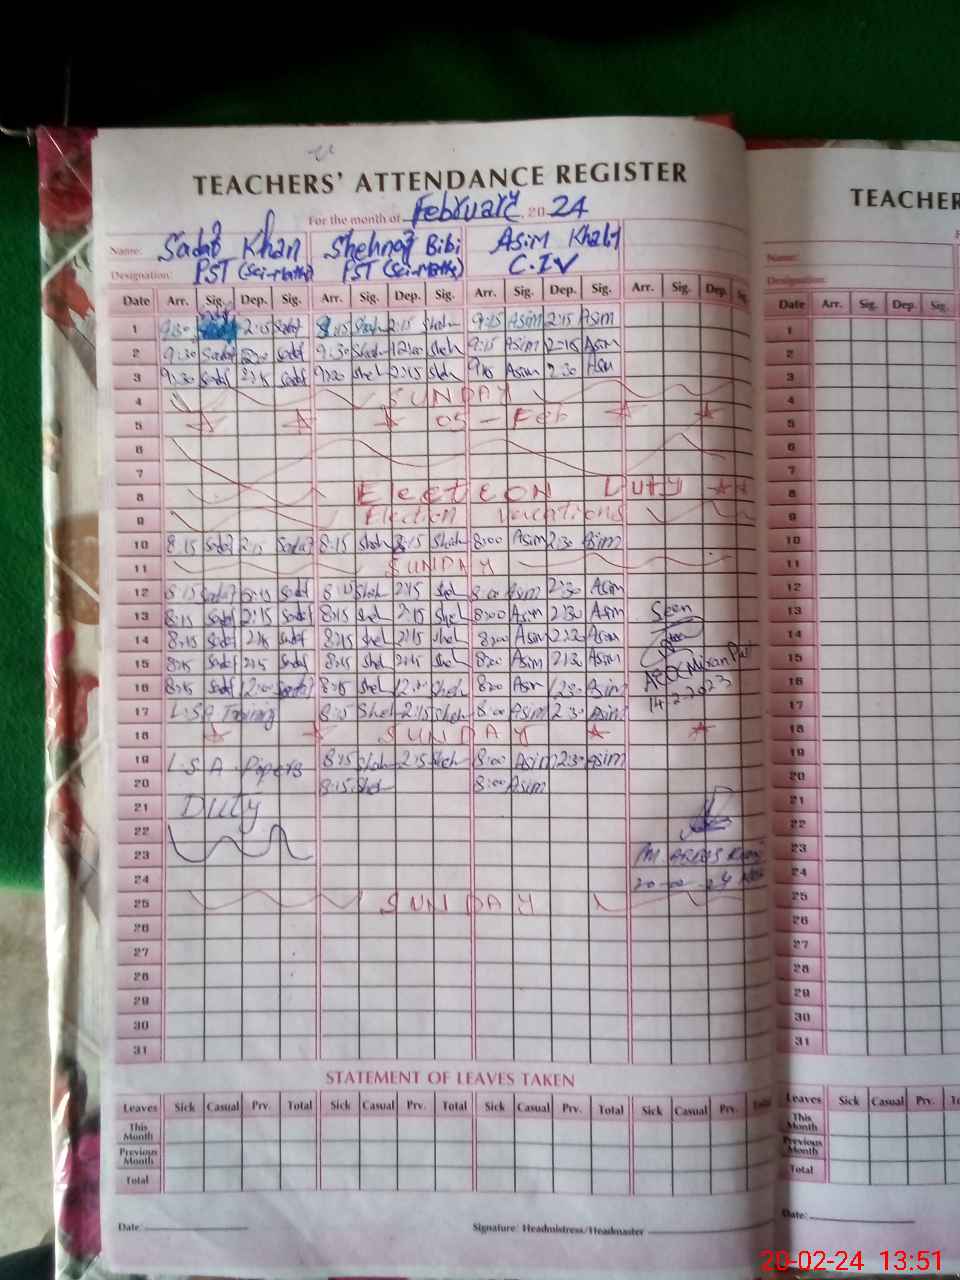 TEACHERS' ATTENDANCE REGISTER
For the month of February, 2024
Name: Sadaf Khan Shehnaz Bibi Asim Khaliq
Designation: PST (Sci-Maths) PST (Sci-Maths) C.IV
Date Arr. Sig. Dep. Sig. Arr. Sig. Dep. Sig. Arr. Sig. Dep. Sig. Arr. Sig. Dep.
1 9:30 2:15 Sadaf 8:15 Sheh 2:15 Sheh 9:15 Asim 2:15 Asim
2 9:30 Sadaf Sadaf 9:30 Sheh 12:00 Sheh 9:15 Asim 2:15 Asim
3 9:30 Sadaf 2:15 Sadaf Sheh 2:15 Sheh Asim 2:30 Asim
4 SUNDAY
5 05 - Feb
6
7
8 Election Duty
9 Election vacations
10 8:15 Sadaf 2:15 Sadaf 8:15 Sheh Sheh 8:00 Asim 2:30 Asim
11 SUNDAY
12 8:15 Sadaf Sadaf 8:15 Sheh 2:15 Sheh 8:00 Asim 2:30 Asim
13 8:15 Sadaf 2:15 Sadaf 8:15 Sheh 2:15 Sheh 8:00 Asim 2:30 Asim Seen
14 8:15 Sadaf 2:15 Sadaf 8:15 Sheh 2:15 Sheh 8:00 Asim 2:30 Asim
15 8:15 Sadaf 2:15 Sadaf 8:15 Sheh 2:15 Sheh 8:00 Asim 2:30 Asim
16 8:15 Sadaf 12:00 Sadaf 8:15 Sheh 12:00 Sheh 8:00 Asim 12:30 Asim
14-2-2023
17 L.S.A Training 8:15 Sheh 2:15 Sheh 8:00 Asim 2:30 Asim
18 SUNDAY
19 L.S.A Papers 8:15 Sheh 2:15 Sheh 8:00 Asim 2:30 Asim
20 8:15 Sheh 8:00 Asim
21 Duty
22
23
24
25 SUNDAY
26
27
28
29
30
31
STATEMENT OF LEAVES TAKEN
Leaves Sick Casual Prv. Total Sick Casual Prv. Total Sick Casual Prv. Total Sick Casual Prv. Total
This Month
Previous Month
Total
Date: Signature: Headmistress/Headmaster
TEACHER
Name:
Designation:
Date Arr. Sig. Dep. Sig.
1
2
3
4
5
6
7
8
9
10
11
12
13
14
15
16
17
18
19
20
21
22
23
24
25
26
27
28
29
30
31
Leaves Sick Casual Prv.
This Month
Previous Month
Total
Date:
20-02-24 13:51